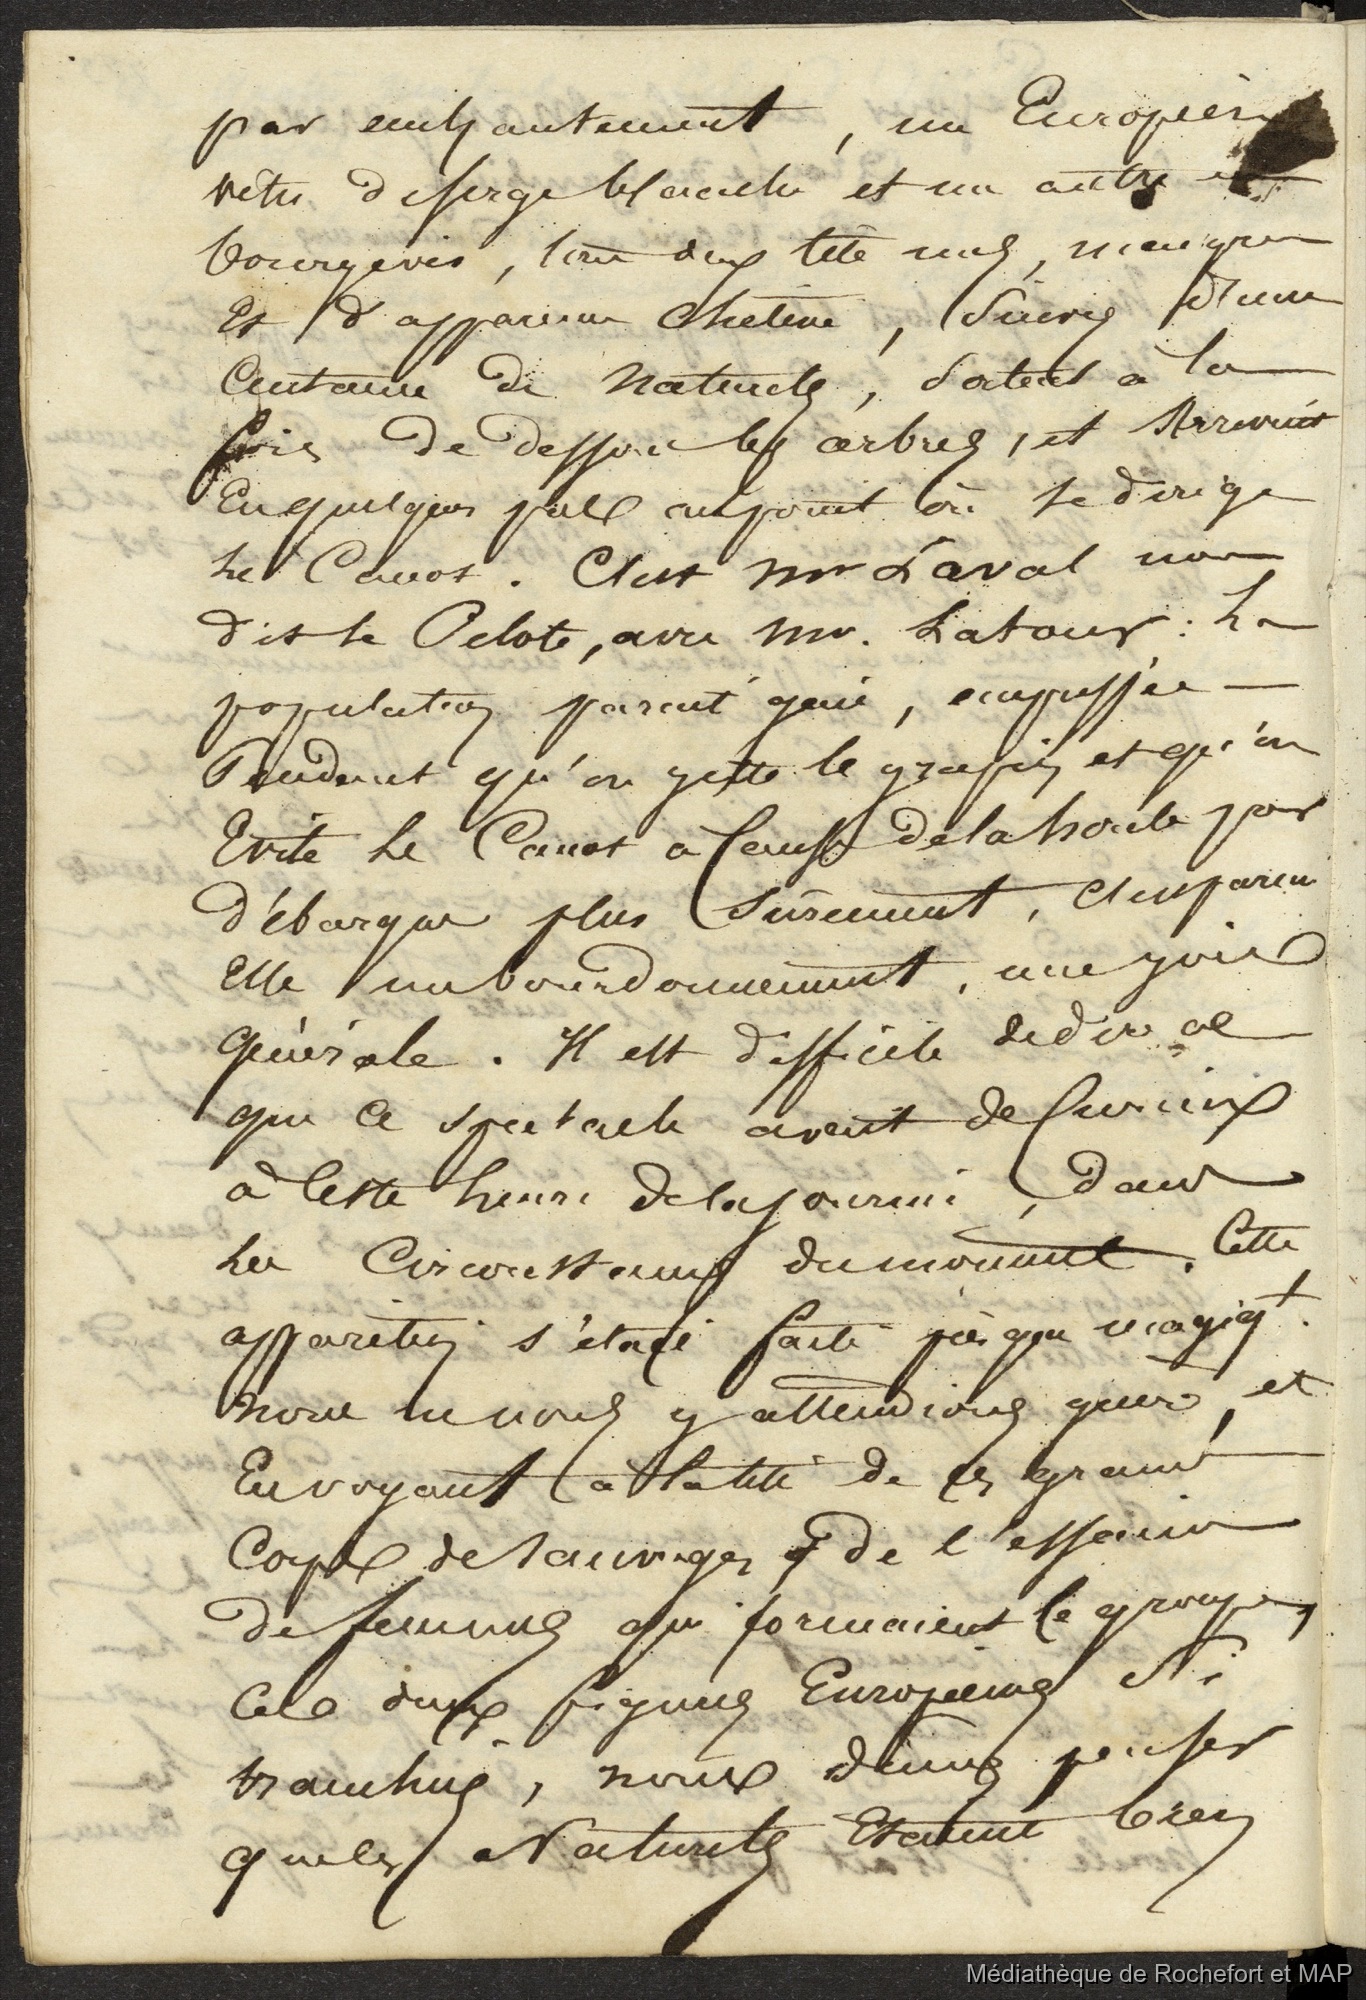 par enchantement, un Européen
vêtu de serge blanche et un autre en
bourgeois, tous deux tête nue, maigres
et d'apparence chétive, suivis d'une
centaine de naturels, sortent à la
fois de dessous les arbres, et arrivent
en quelques pas au point où se dirige
le canot. C'est Mr Laval nous
dit le Pilote, avec Mr. Latour : la
population parait gaie, empressée —
Pendant qu'on jette le grapin et qu'on
évite le Canot à cause de la houle pour
débarquer plus surement, c'est parmi
elle un bourdonnement, une joie
générale. Il est difficile de dire ce
que ce spectacle avait de curieux
à cette heure de la journée, dans
les circonstances du moment. Cette
apparition s'était faite presque magiqt.
nous ne nous y attendions guère, et
En voyant à la tête de ces grands
corps de sauvages & de l'essaim
de femmes qui formaient le groupe,
ces deux figures Européennes si
tranchées, nous dûmes penser
que les Naturels étaient bien
Médiathèque de Rochefort et MAP